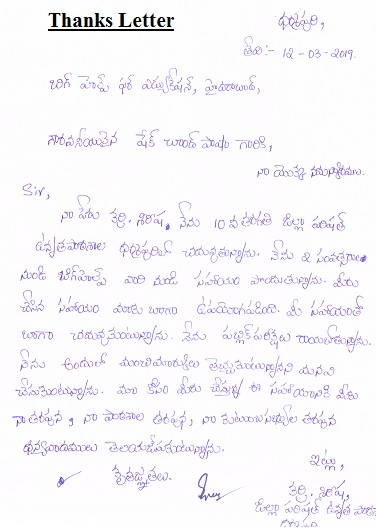 Thanks Letter
ధర్మపురి,
తేది:- 12-03-2019.
బిగ్ హెల్ప్ ఫర్ ఎడ్యుకేషన్, హైదరాబాద్,
గౌరవనీయులైన షేక్ చాంద్ పాషా గారికి,
నా యొక్క నమస్కారములు.
Sir,
నా పేరు కర్రి. శిరీష, నేను 10వ తరగతి జిల్లా పరిషత్
ఉన్నత పాఠశాల ధర్మపురిలో చదువుతున్నాను. నేను 2 సంవత్సరాల
నుండి బిగ్‌హెల్ప్ వారి నుండి సహాయం పొందుతున్నాను. మీరు
చేసిన సహాయం మాకు బాగా ఉపయోగపడింది. మీ సహాయంతో
బాగా చదువుకుంటున్నాను. నేను పబ్లిక్ పరీక్షలు రాయబోతున్నాను.
నేను అందులో మంచి మార్కులు తెచ్చుకుంటానని మనవి
చేసుకుంటున్నాను. మా కోసం మీరు చేస్తున్న ఈ సహాయానికి మీకు
నా తరపున, నా పాఠశాల తరపున, నా కుటుంబసభ్యుల తరపున
ధన్యవాదములు తెలియజేసుకుంటున్నాను.
ఇట్లు,
కృతజ్ఞతలు.
కర్రి. శిరీష,
జిల్లా పరిషత్ ఉన్నత